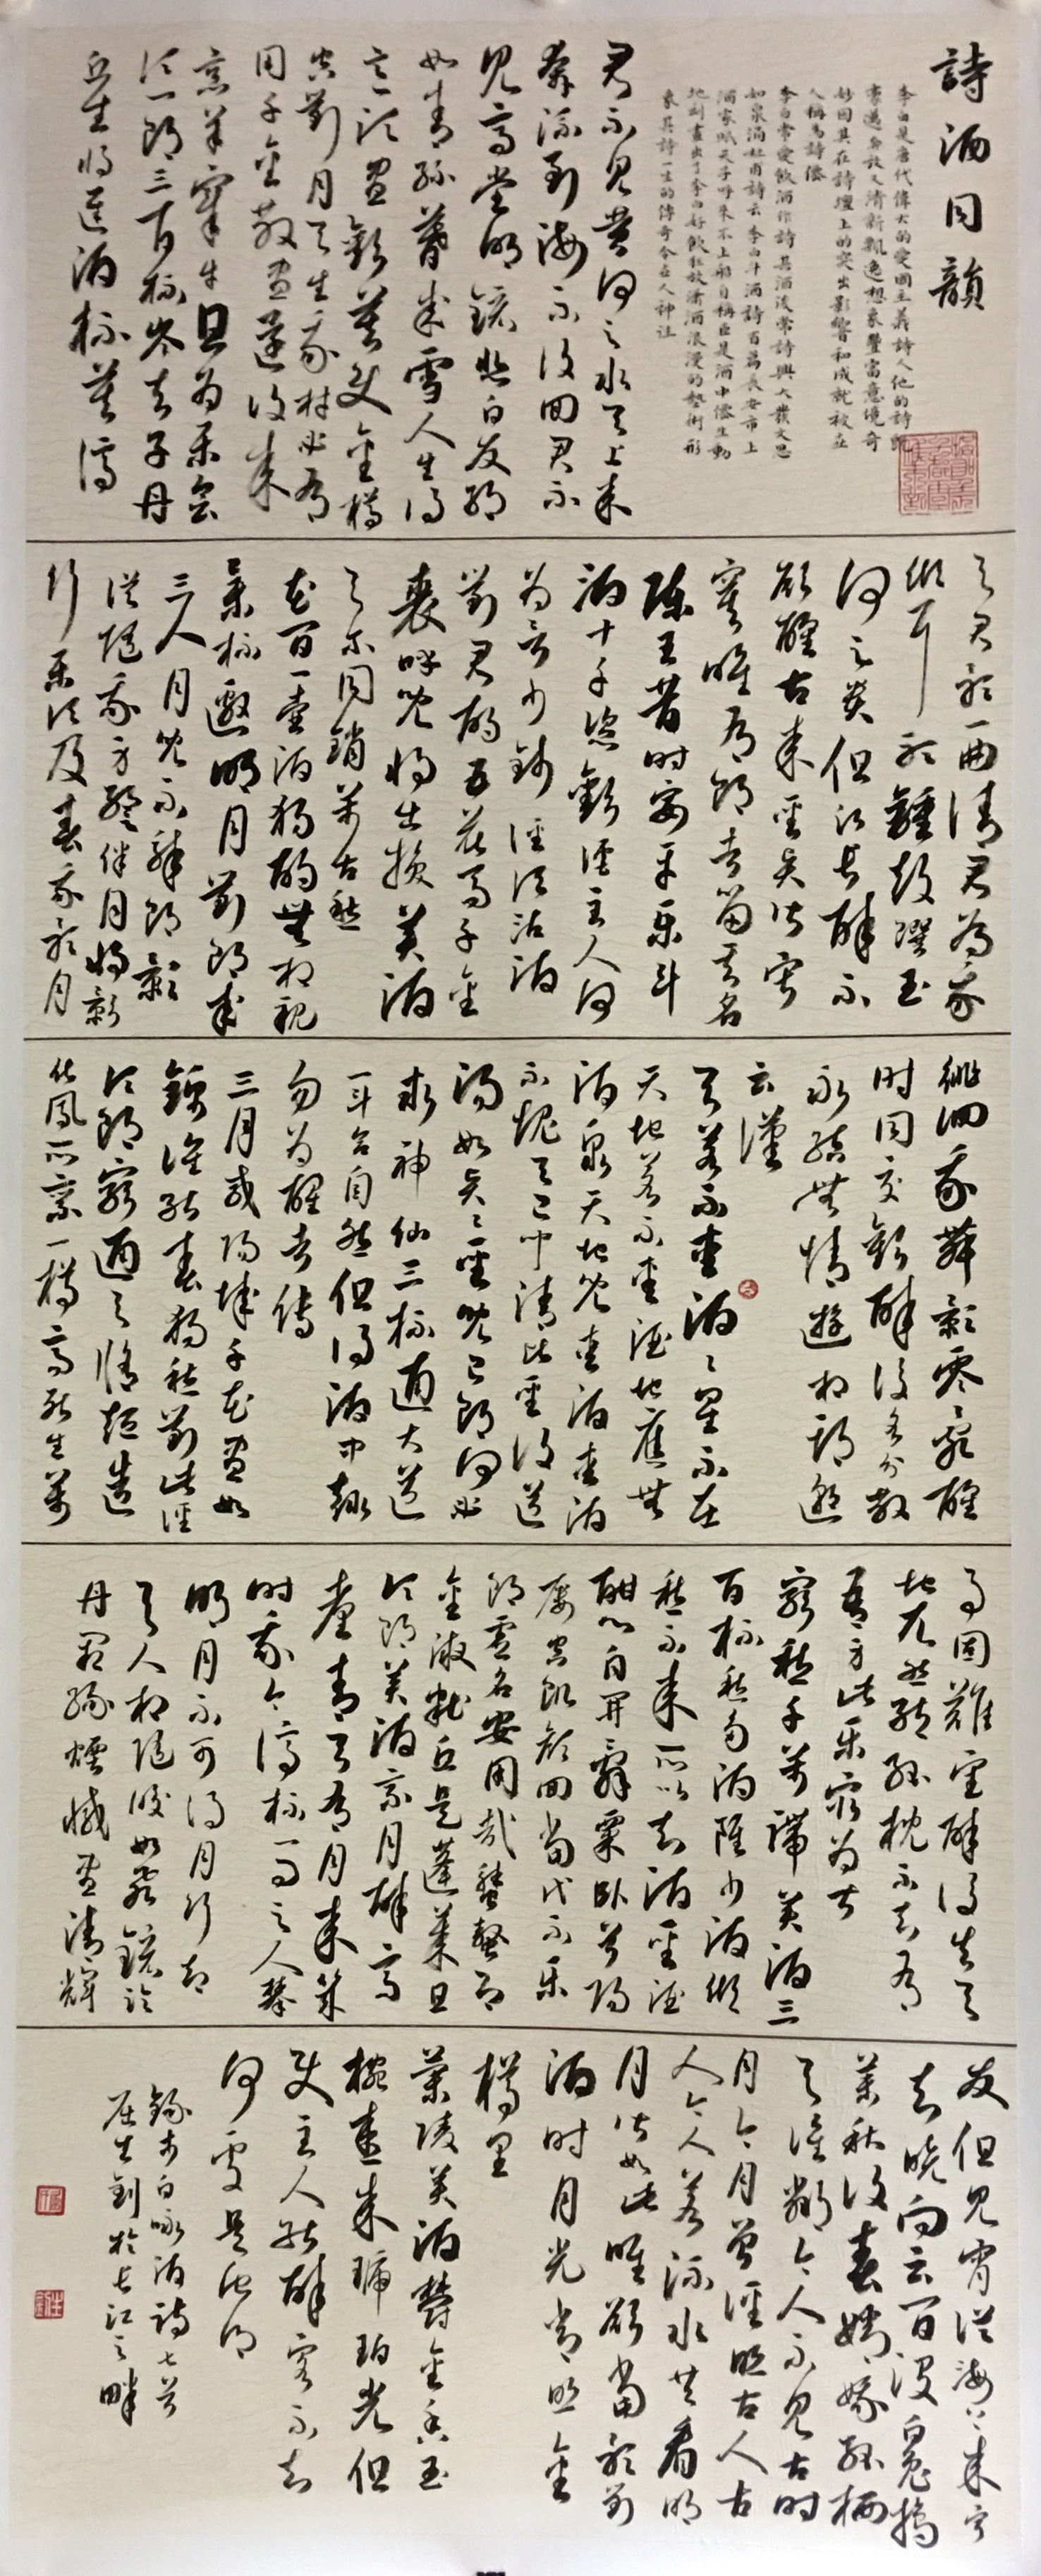 詩酒同韻
李白是唐代偉大的愛國主義詩人他的詩飄
人稱為詩僊
李白常愛飲酒作詩其酒後常詩興大發文思
如泉涌杜甫詩云李白斗酒詩百篇長安市上
酒家眠天子呼來不上船自稱臣是酒中僊生動
地刻畫出了李白好飲狂放瀟洒浪漫的藝術形
君不見黃河之水天上來
奔流到海不復回君不
見高堂明鏡悲白髮朝
如青絲暮成雪人生得
意須盡歡莫使金樽
空對月天生我材必有
用千金散盡還復來
烹羊宰牛且為樂會
須一飲三百杯岑夫子丹
丘生將進酒杯莫停
與君歌一曲請君為我
傾耳聽鐘鼓饌玉
何足貴但願長醉不
願醒古來聖賢皆寂
寞唯有飲者留其名
陳王昔時宴平樂斗
酒十千恣歡謔主人何
為言少錢徑須沽酒
對君酌五花馬千金
裘呼兒將出換美酒
與爾同銷萬古愁
花間一壺酒獨酌無相親
舉杯邀明月對影成
三人月既不解飲影
徒隨我身暫伴月將影
行樂須及春我歌月
徘徊我舞影零亂醒
時同交歡醉後各分散
永結無情遊相期邈
雲漢
天若不愛酒酒星不在
天地若不愛酒地應無
酒泉天地既愛酒愛酒
不愧天已聞清比聖復道
濁如賢賢聖既已飲何必
求神仙三杯通大道
一斗合自然但得酒中趣
勿為醒者傳
三月咸陽城千花晝如
錦誰能春獨愁對此徑
須飲窮通與修短造
化夙所稟一樽齊死生萬
事固難審醉後失天
地兀然就孤枕不知有
吾身此樂最為甚
窮愁千萬端美酒三
百杯愁多酒雖少酒傾
愁不來所以知酒聖酒
酣心自開辭粟臥首陽
屢空飢顏回當代不樂
飲虛名安用哉蟹螯即
金液糟丘是蓬萊且
須飲美酒乘月醉高
臺青天有月來幾
時我今停杯一問之人攀
明月不可得月行卻
與人相隨皎如飛鏡臨
丹闕綠煙滅盡清輝
發但見宵從海上來寧
知曉向雲間沒白兔搗
藥秋復春嫦娥孤棲
與誰鄰今人不見古時
月今月曾經照古人古
人今人若流水共看明
月皆如此唯願當歌對
酒時月光常照金
樽里
蘭陵美酒鬱金香玉
椀盛來琥珀光但
使主人能醉客不知
何處是他鄉
錄李白詠酒詩七首